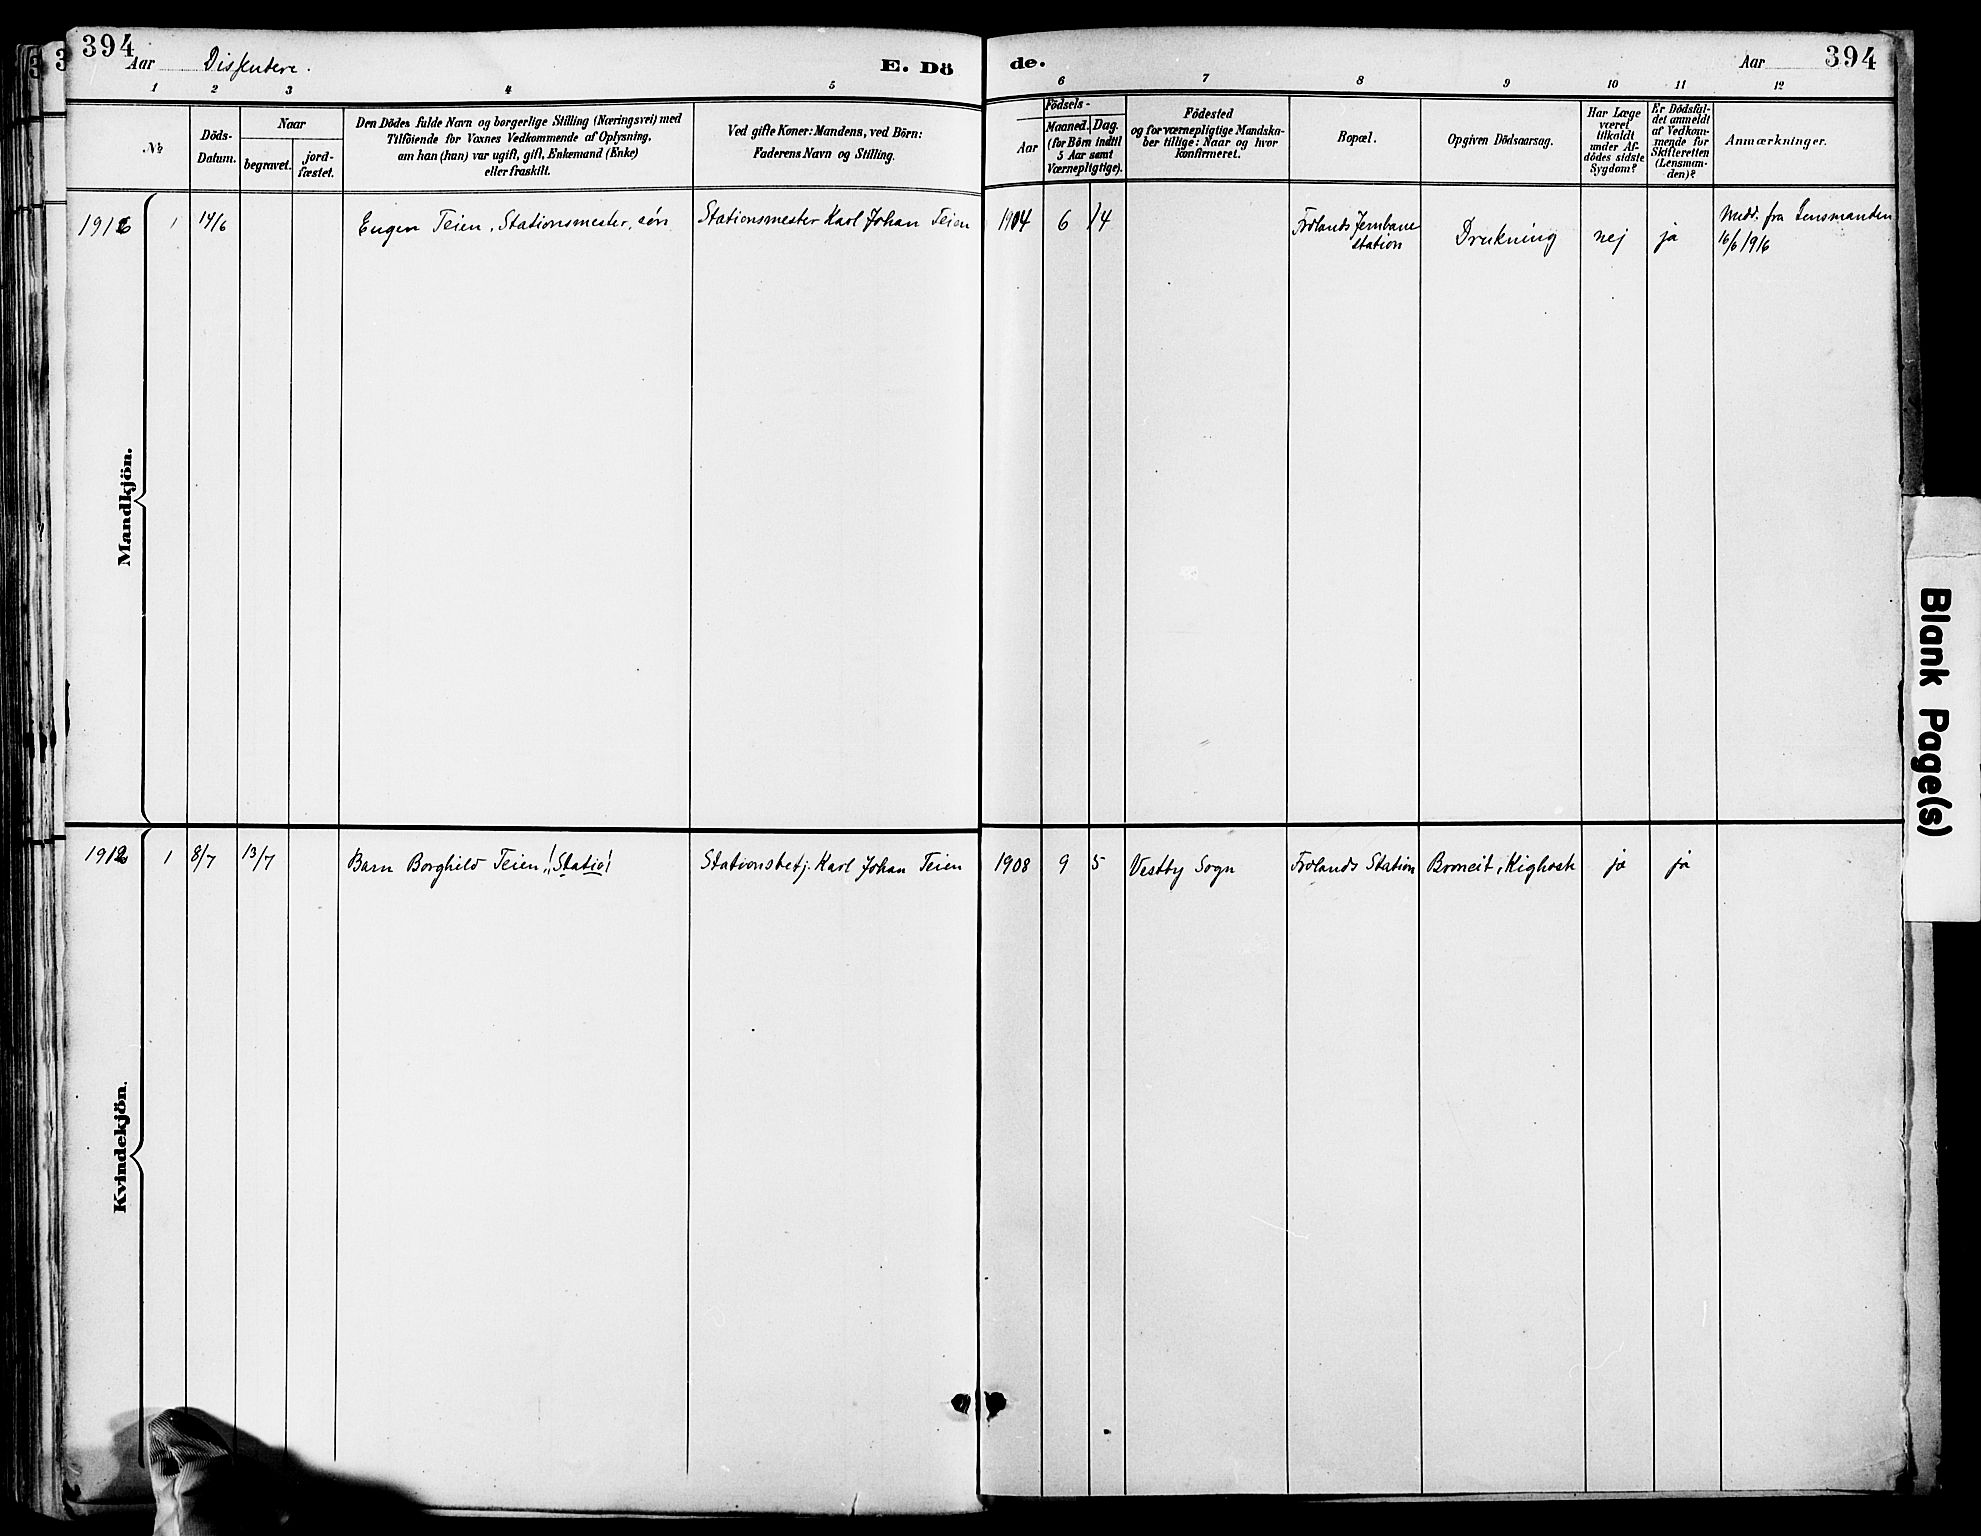 394
Aar Dissentere.
E. Dö
de.
Aar
394
1 2 3 4 5 6 7 8 9 10 11 12
№
Döds-
Datum.
Naar
begravet.
jord-
fæstet.
Den Dödes fulde Navn og borgerlige Stilling (Næringsvei) med
Tilföiende for Voxnes Vedkommende af Oplysning,
om han (hun) var ugift, gift, Enkemand (Enke)
eller fraskilt.
Ved gifte Koner: Mandens, ved Börn:
Faderens Navn og Stilling.
Födsels-
Aar
Maaned. Dag.
(for Börn indtil
5 Aar samt
Værnepligtige).
Födested
og for værnepligtige Mandska-
ber tillige: Naar og hvor
konfirmeret.
Bopæl.
Opgiven Dödsaarsag.
Har Læge
været
tilkaldt
under Af-
dödes sidste
Sygdom?
Er Dödsfal-
det anmeldt
af Vedkom-
mende for
Skifteretten
(Lensman-
den)?
Anmærkninger.
Mandkjön.
1916 1 14/6 Eugen Teien, Stationsmester, sön Stationsmester Karl Johan Teien 1904 6 14 Frolands Jernbane
station
Drukning nej ja Medd. fra Lensmanden
16/6 1916
Kvindekjön.
1 8/7 13/7 Barn Borghild Teien, Stationsbetj. Karl Johan Teien 1908 9 5 Vestby Sogn Frolands Station Broncit, Kighoste ja ja
Blank Page(s)